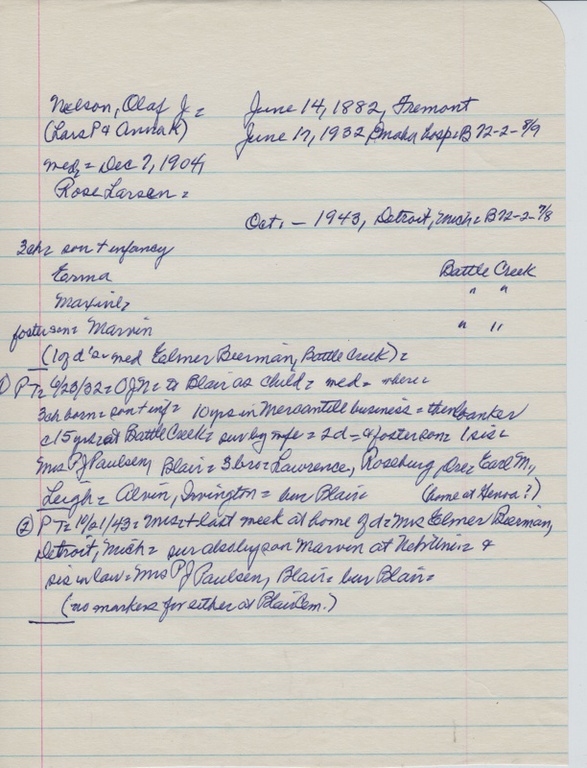 Nelson, Olaf J = June 14, 1882, Fremont
(Lars P & Anna K) June 17, 1932 Omaha Hosp = B 72-2-8/9
med = Dec 7, 1904
Rose Larsen =
Oct. - 1943, Detroit, Mich = B 72-2-7/8
3 ch = son + infancy
Erma Battle Creek
Maxine = " "
foster son = Marvin " "
(1 of d's med Elmer Bierman, Battle Creek) =
1) PT = 6/23/32 = OJN = to Blair as child = med = where =
3 ch born = son + inf = 10 yrs in Mercantile business = then banker
c 15 yrs at Battle Creek = sur by wife = 2 d = & foster son = 1 sis =
Mrs PJ Paulsen, Blair = 3 bro = Lawrence, Roseburg, Ore = Earl M.,
Leigh = Alvin, Irvington = bur Blair = (home at Genoa?)
2) PT = 10/21/43 = Mrs + last week at home of d = Mrs Elmer Bierman,
Detroit, Mich = sur also by son Marvin at Neb Uni = &
sis in law = Mrs PJ Paulsen, Blair = bur Blair =
(no markers for either at Blair Cem.)